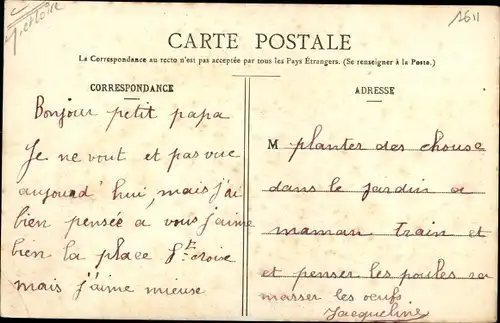 1611
CARTE POSTALE
La Correspondance au recto n'est pas acceptée par tous les Pays Étrangers. (Se renseigner à la Poste.)
CORRESPONDANCE
Bonjour petit papa
Je ne vout et pas vue
aujourd'hui, mais j'ai
bien pensée a vous j'aime
bien la place Ste Croix
mais j'aime mieuse
ADRESSE
M planter des chouse
dans le jardin a
maman train et
et penser les poules ra
masser les oeufs
Jacqueline